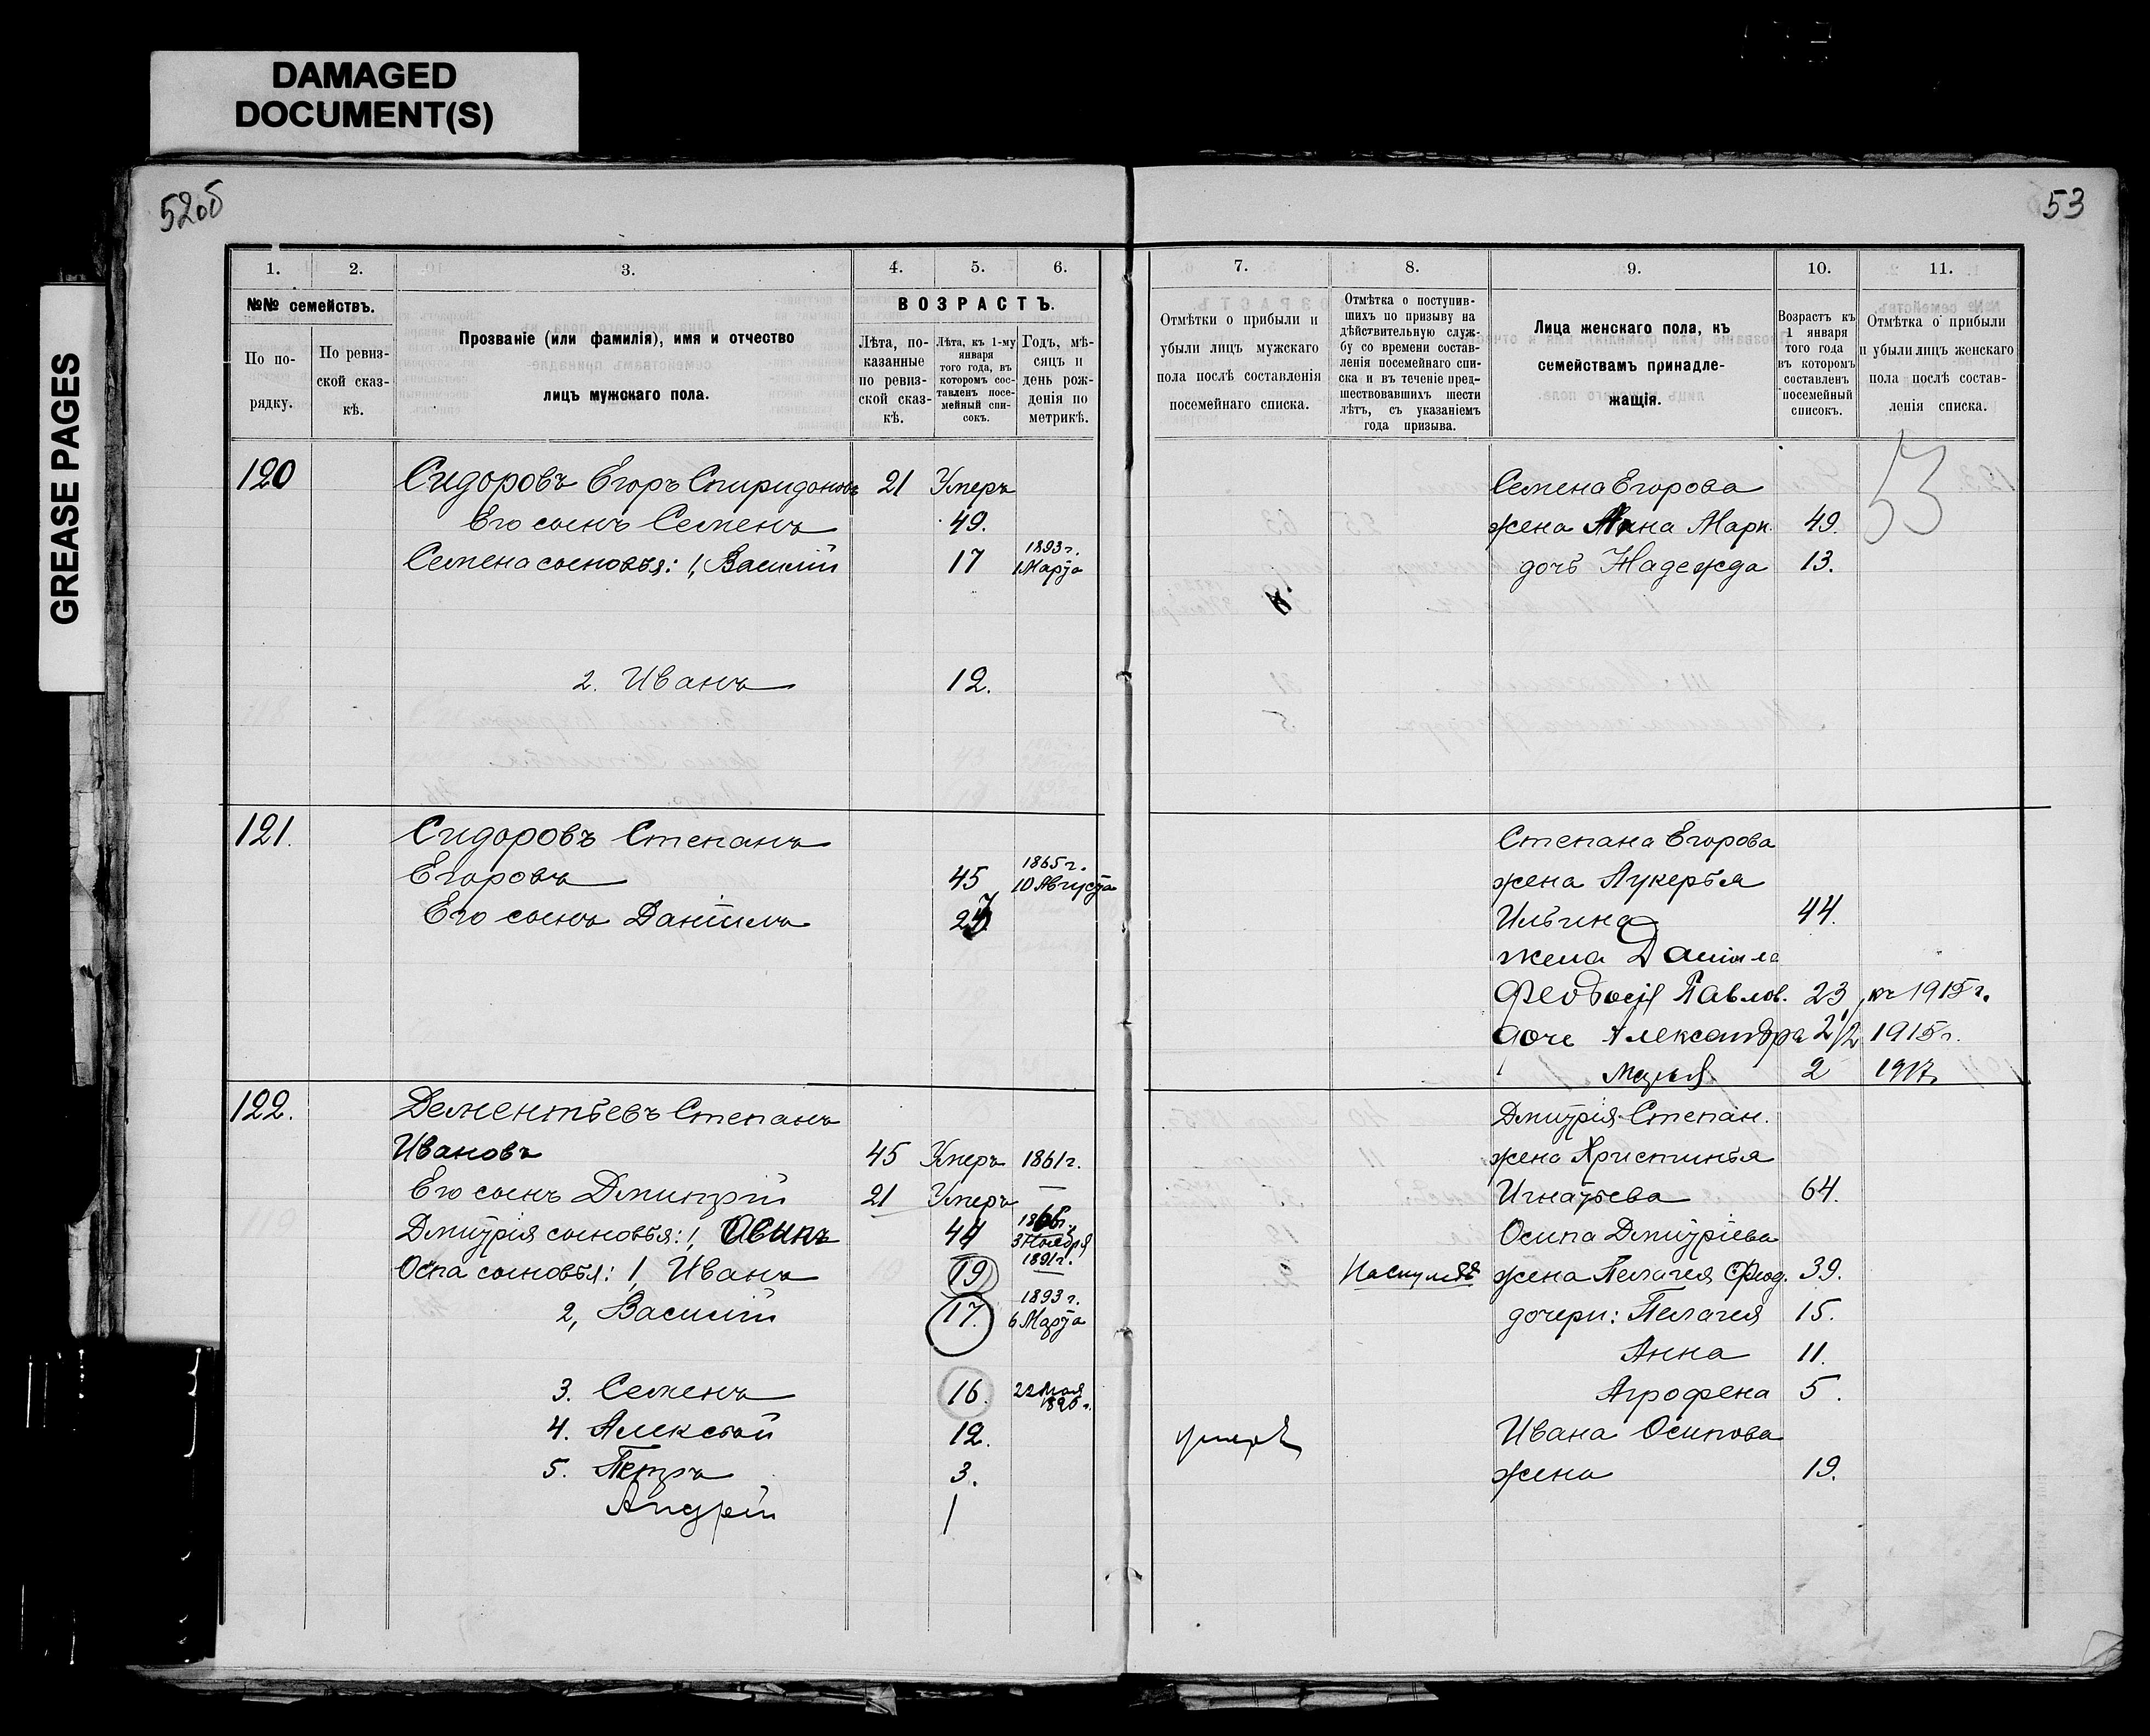 DAMAGED
DOCUMENT(S)
GREASE PAGES
52об
53
1.
2.
3.
4.
5.
6.
№№ семействъ.
По по-
рядку.
По ревиз-
ской сказ-
кѣ.
Прозваніе (или фамилія), имя и отчество
лицъ мужскаго пола.
ВОЗРАСТЪ.
Лѣта, по-
казанные
по ревиз-
ской сказ-
кѣ.
Лѣта, къ 1-му
января
того года, въ
которомъ сос-
тавленъ посе-
мейный спи-
сокъ.
Годъ, мѣ-
сяцъ и
день рож-
денія по
метрикѣ.
120 Сидоровъ Егоръ Спиридоновъ 21 Умеръ
Его сынъ Семенъ 49.
1893 г.
Семена сыновья: 1, Василій 17 1 Марта
2. Иванъ 12.
121. Сидоровъ Степанъ
1865 г.
Егоровъ 45 10 Августа
Его сынъ Даніилъ
122. Дементьевъ Степанъ
Ивановъ 45 Умеръ 1861 г.
Его сынъ Дмитрій 21 Умеръ —
Дмитрія сыновья: 1, 44 3 Ноября
1891 г.
Осипа сыновья: 1, Иванъ 19
1893 г.
2, Василій 17. 6 Марта
3. Семенъ 16. 22 Мая
4. Алексѣй 12.
5. Петръ 3.
Андрей 1
7.
8.
9.
10.
11.
Отмѣтки о прибыли и
убыли лицъ мужскаго
пола послѣ составленія
посемейнаго списка.
Отмѣтка о поступив-
шихъ по призыву на
дѣйствительную служ-
бу со времени состав-
ленія посемейнаго спи-
ска и въ теченіе пред-
шествовавшихъ шести
лѣтъ, съ указаніемъ
года призыва.
Лица женскаго пола, къ
семействамъ принадле-
жащія.
Возрастъ къ
1 января
того года
въ которомъ
составленъ
посемейный
списокъ.
Отмѣтка о прибыли
и убыли лицъ женскаго
пола послѣ состав-
ленія списка.
53
Семена Егорова
жена Анна Марк. 49.
дочь Надежда 13.
Степана Егорова
жена Лукерья
Ильина 44.
жена Даніила
Феодосія Павлов. 23 къ 1915 г.
дочь Александра 2 1/2 1915 г.
Марья 2 1917.
Дмитрія Степан.
жена Христинья
Игнатьева 64.
Осипа Дмитріева
жена Пелагея Феод. 39.
дочери: Пелагея 15.
Анна 11.
Агрофена 5.
умеръ Ивана Осипова
жена 19.